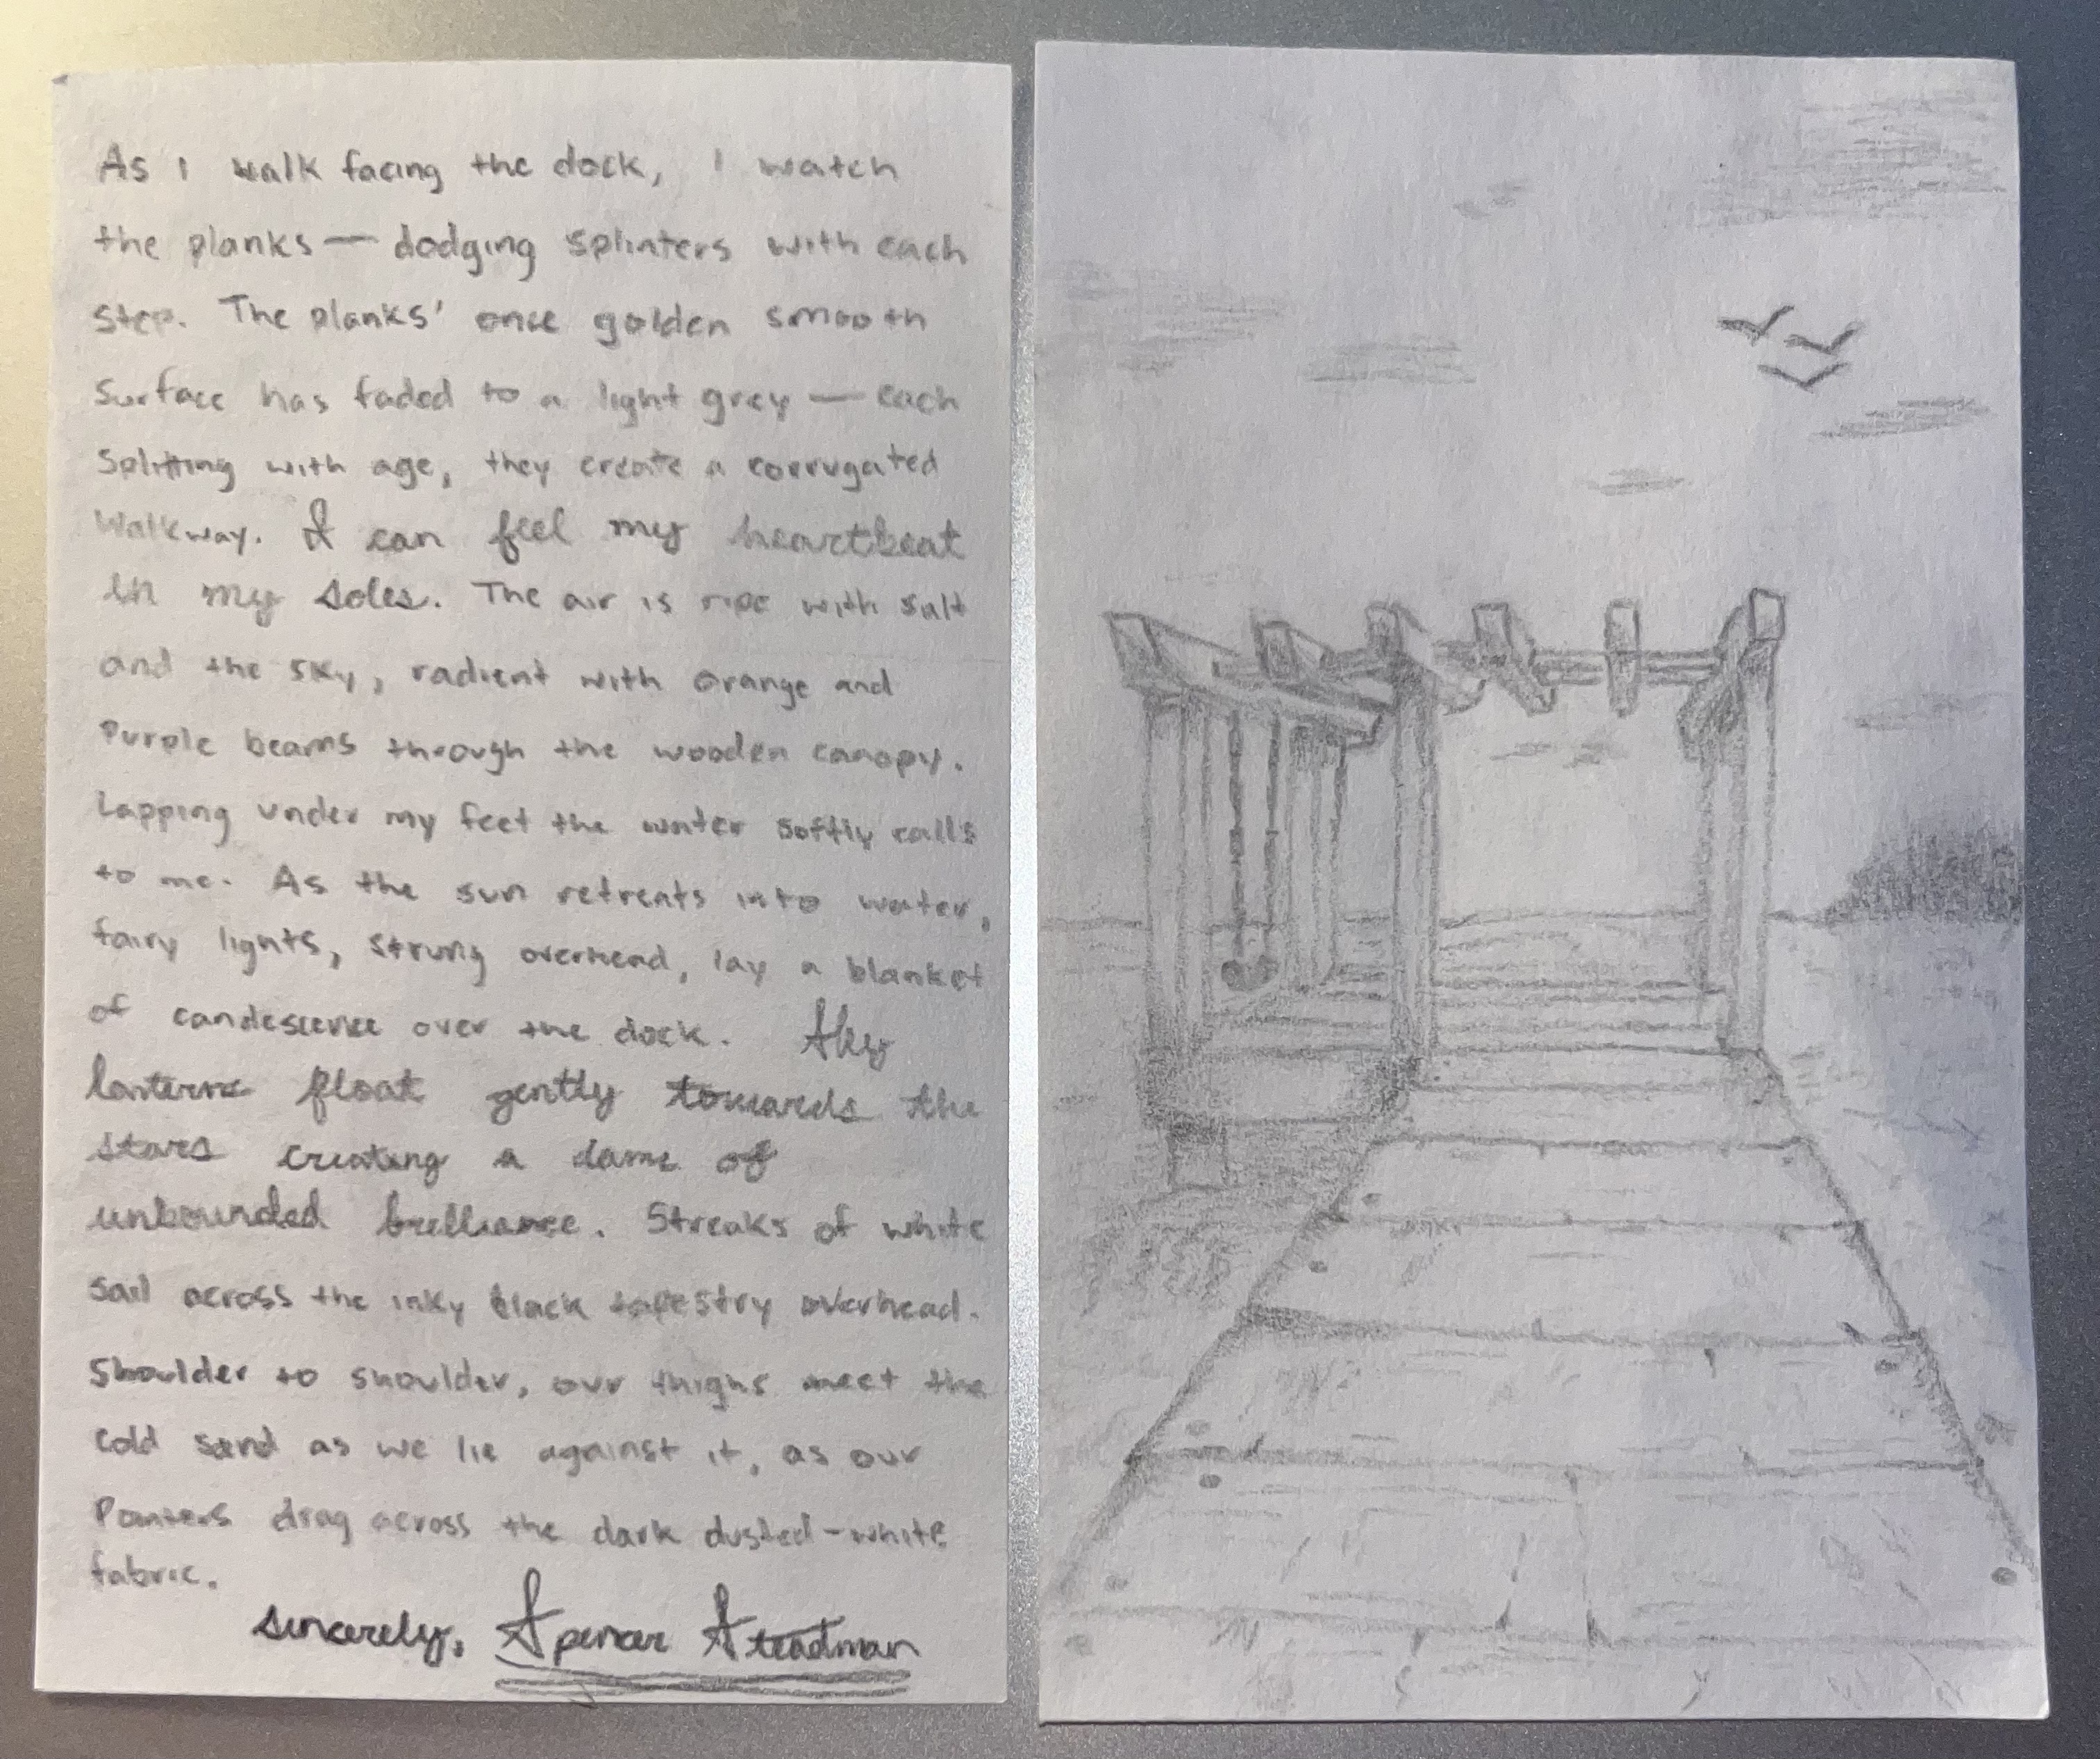 As I walk facing the dock, I watch
the planks — dodging splinters with each
step. The planks' once golden smooth
surface has faded to a light grey — each
splitting with age, they create a corrugated
walkway. I can feel my heartbeat
in my soles. The air is ripe with salt
and the sky, radient with orange and
purple beams through the wooden canopy.
Lapping under my feet the water softly calls
to me. As the sun retreats into water,
fairy lights, strung overhead, lay a blanket
of candescence over the dock. Sky
lanterns float gently towards the
stars creating a dame of
unbounded brilliance. Streaks of white
sail across the inky black tapestry overhead.
Shoulder to shoulder, our thighs meet the
cold sand as we lie against it, as our
Pointers drag across the dark dusted-white
fabric.
Sincerely, Spencer Steadman